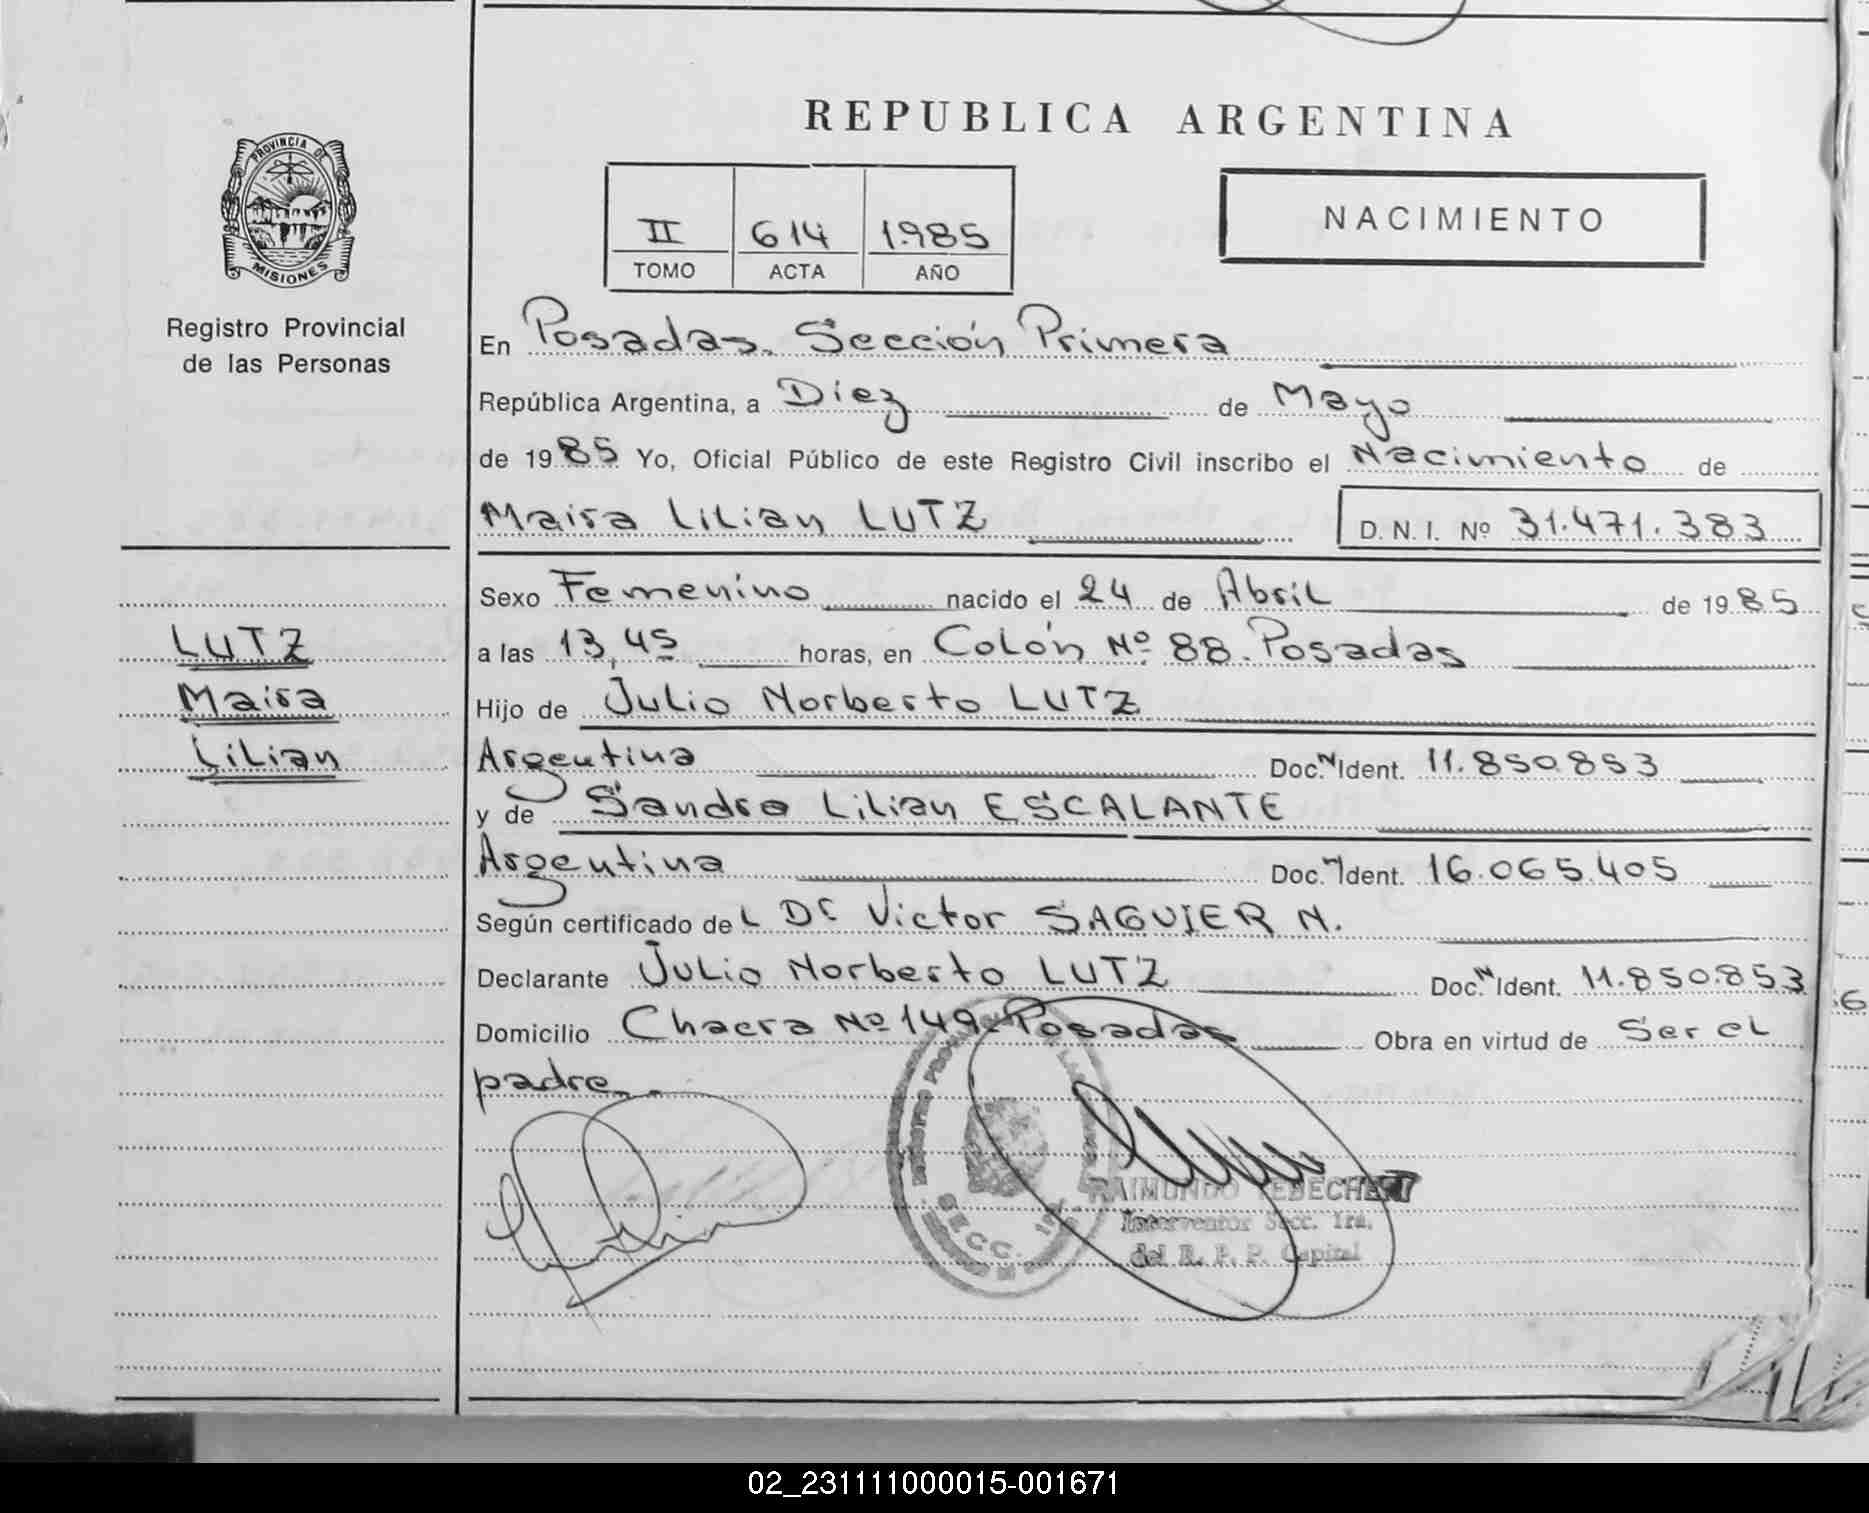 REPUBLICA ARGENTINA
PROVINCIA DE
MISIONES
Registro Provincial
de las Personas
II 614 1.985
TOMO ACTA AÑO
NACIMIENTO
En Posadas. Sección Primera
República Argentina, a Diez de Mayo
de 1985 Yo, Oficial Público de este Registro Civil inscribo el Nacimiento de
Maira Lilian LUTZ D. N. I. Nº 31.471.383
Sexo Femenino nacido el 24 de Abril de 1985
LUTZ
Maira
Lilian
a las 13,45 horas, en Colón Nº 88. Posadas
Hijo de Julio Norberto LUTZ
Argentina Doc. N Ident. 11.850.853
y de Sandra Lilian ESCALANTE
Argentina Doc. N Ident. 16.065.405
Según certificado del Dr Victor SAGUIER N.
Declarante Julio Norberto LUTZ Doc. N Ident. 11.850.853
Domicilio Chacra Nº 149. Posadas Obra en virtud de Ser el
padre.
SECC. 1ra.
RAIMUNDO
Interventor Secc. 1ra.
del R. P. P. Capital
02_231111000015-001671